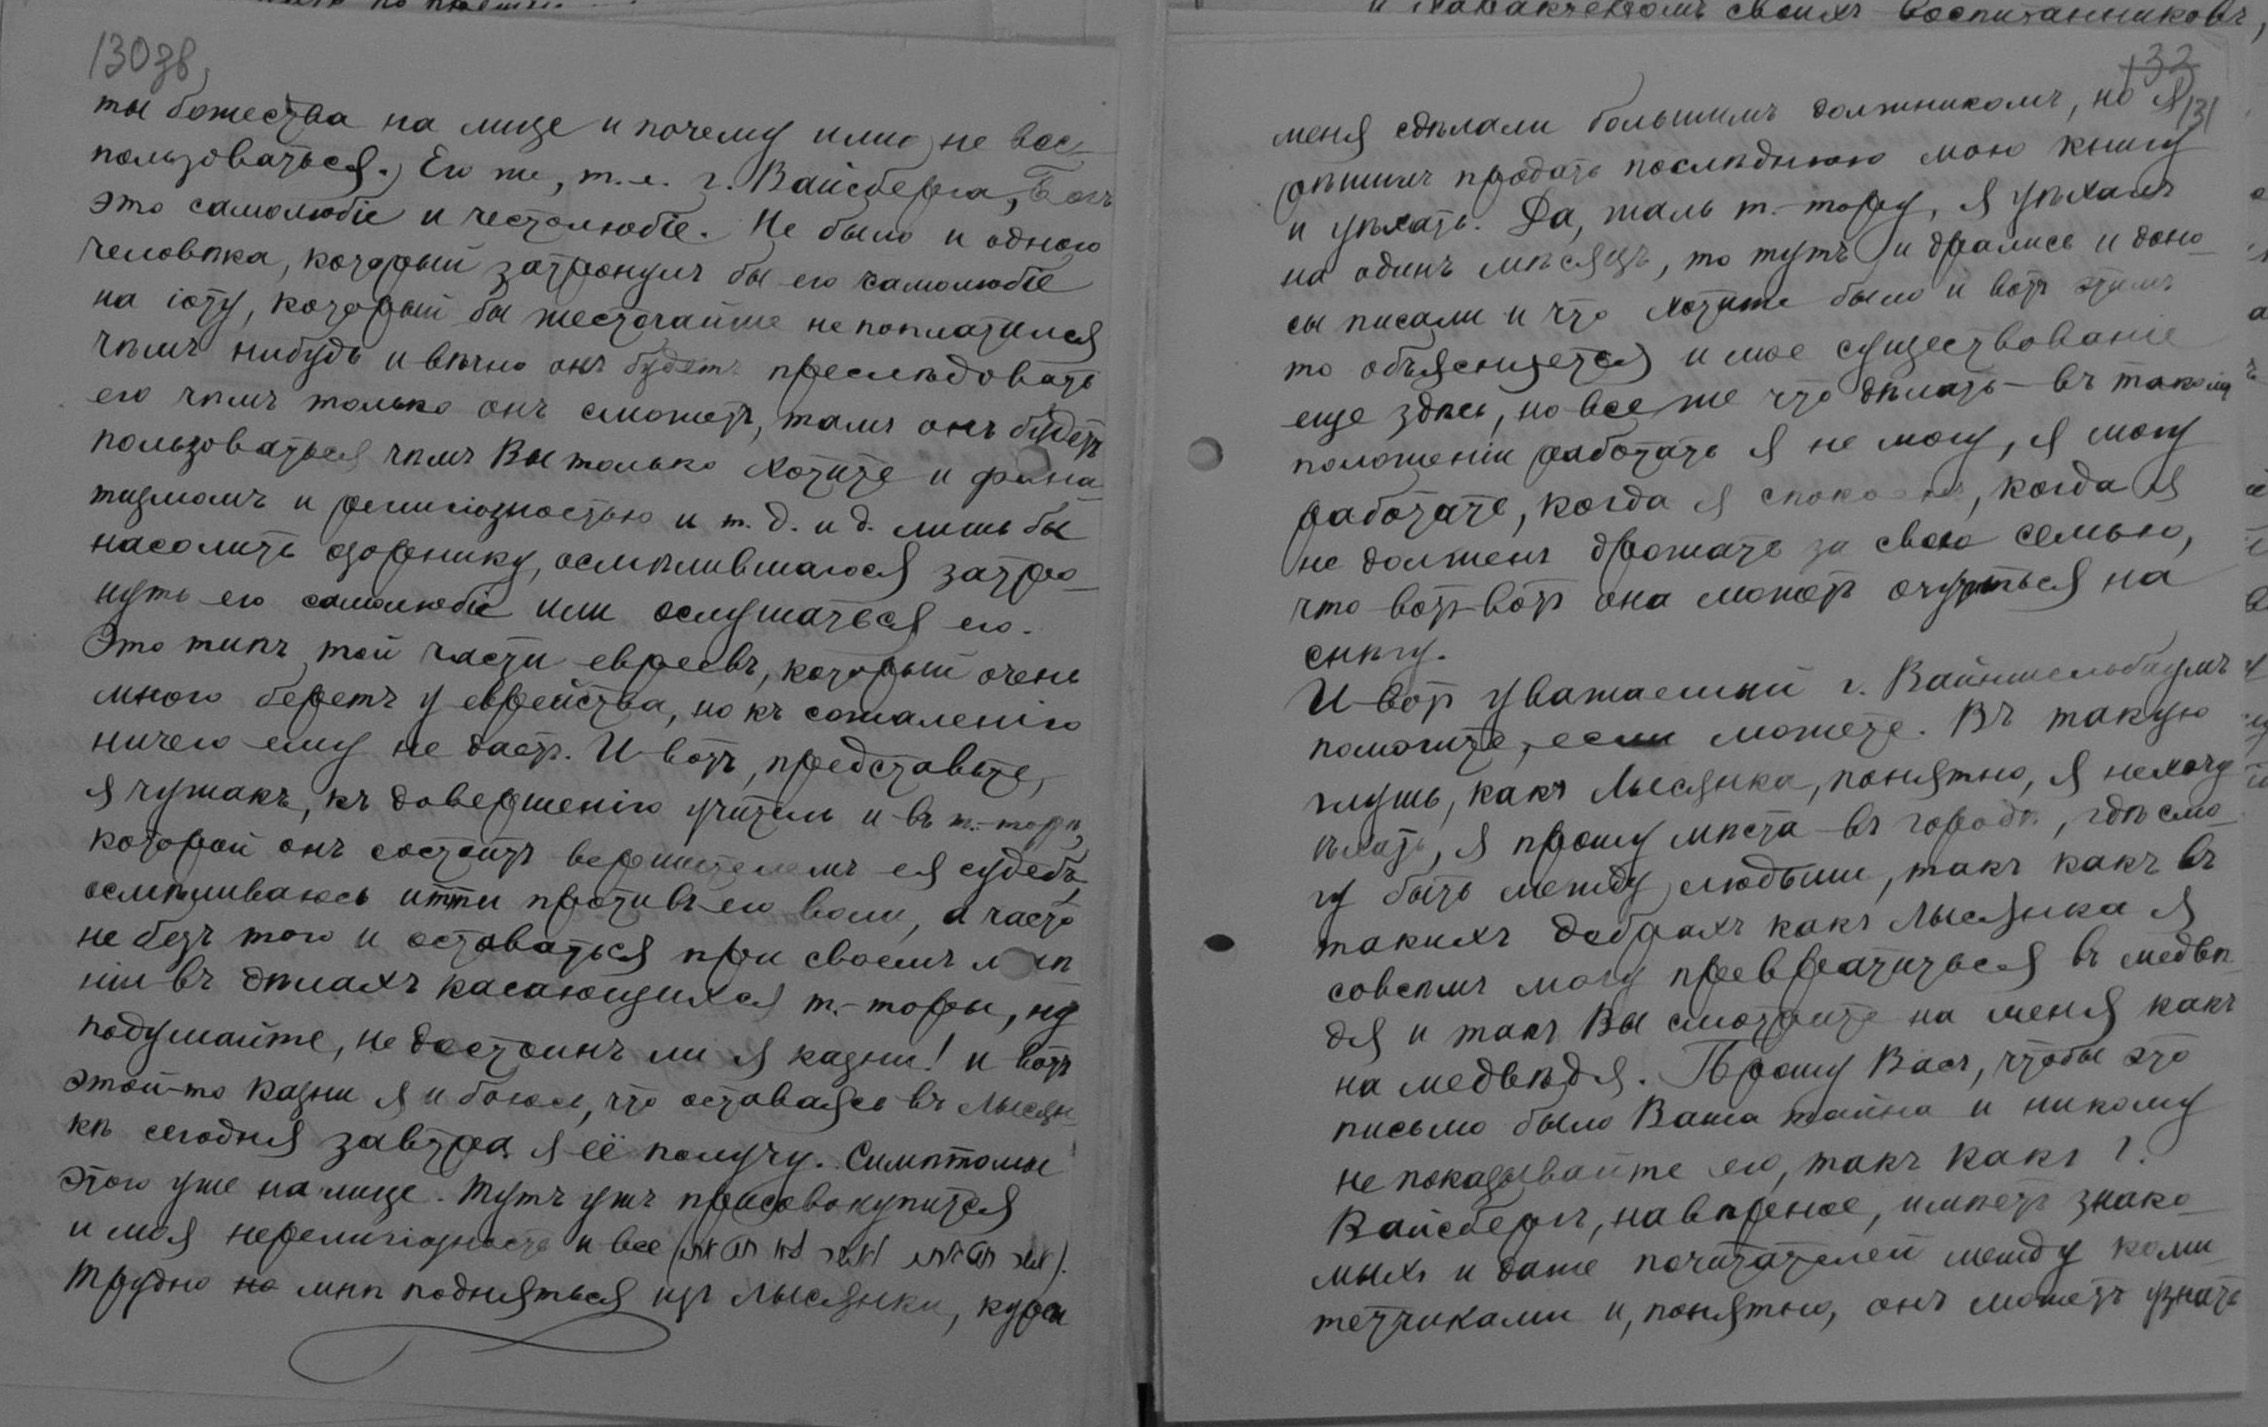 130зв,
ты божества на лице и почему ими не вос-
пользоваться. Его же, т.е. г. Вайсберга, Богъ
это самолюбіе и честолюбіе. Не было и одного
человѣка, который затронулъ бы его самолюбіе
на іоту, который бы жесточайше не поплатился
чѣмъ нибудь и вѣчно онъ будетъ преслѣдовать
его чѣмъ только онъ сможетъ, тамъ онъ будетъ
пользоваться чѣмъ Вы только хотите и фана-
тизмомъ и религіозностью и т. д. и д. лишь бы
насолить озорнику, осмѣлившагося затро-
нуть его самолюбіе или ослушаться его.
Это типъ той части евреевъ, который очень
много беретъ у еврейства, но къ сожаленію
ничего ему не дастъ. И вотъ, представьте,
я чужакъ, къ довершенію учитель и въ т.-торѣ,
которой онъ состоитъ вершителемъ ея судебъ,
осмѣливаюсь итти противъ его воли, а часто
не безъ того и оставаться при своемъ мнѣ
ніи въ дѣлахъ касающихся т.-торы, ну
подумайте, не достоинъ ли я казни! и вотъ
этой-то казни я и боюсь, что оставаясь въ Лысян-
кѣ сегодня завтра я её получу. Симптомы
этого уже на лице. Тутъ ужъ присовокупится
и моя нерелигіозность и все
Трудно но мнѣ подняться изъ Лысянки, курсы
и характеромъ своихъ воспитанниковъ,
132
131
меня сдѣлали большимъ должникомъ, но я
рѣшилъ продать послѣднюю мою книгу
и уѣхать. Да, жаль т.-тору, я уѣхалъ
на одинъ мѣсяцъ, то тутъ и дрались и доно-
сы писали и что хотите было и вотъ этимъ
то объясняется и мое существованіе
еще здѣсь, но все же что дѣлать - въ такомъ
положеніи работать я не могу, я могу
работать, когда я спокоенъ, когда я
не долженъ дрожать за свою семью,
что вотъ-вотъ она можетъ очутиться на
снѣгу.
И вотъ уважаемый г. Вайншельбаумъ
помогите, если можете. Въ такую
глушь, какъ Лысянка, понятно, я не хочу
ѣхать, я прошу мѣста въ городѣ, гдѣ смо
гу быть между людьми, такъ какъ въ
такихъ дебряхъ какъ Лысянка я
совсѣмъ могу превратиться въ медвѣ-
дя и такъ Вы смотрите на меня какъ
на медвѣдя. Прошу Васъ, чтобы это
письмо было Ваша тайна и никому
не показывайте его, такъ какъ г.
Вайсбергъ, навѣрное, имѣетъ знако-
мыхъ и даже почитателей между коми-
тетчиками и, понятно, онъ можетъ узнать